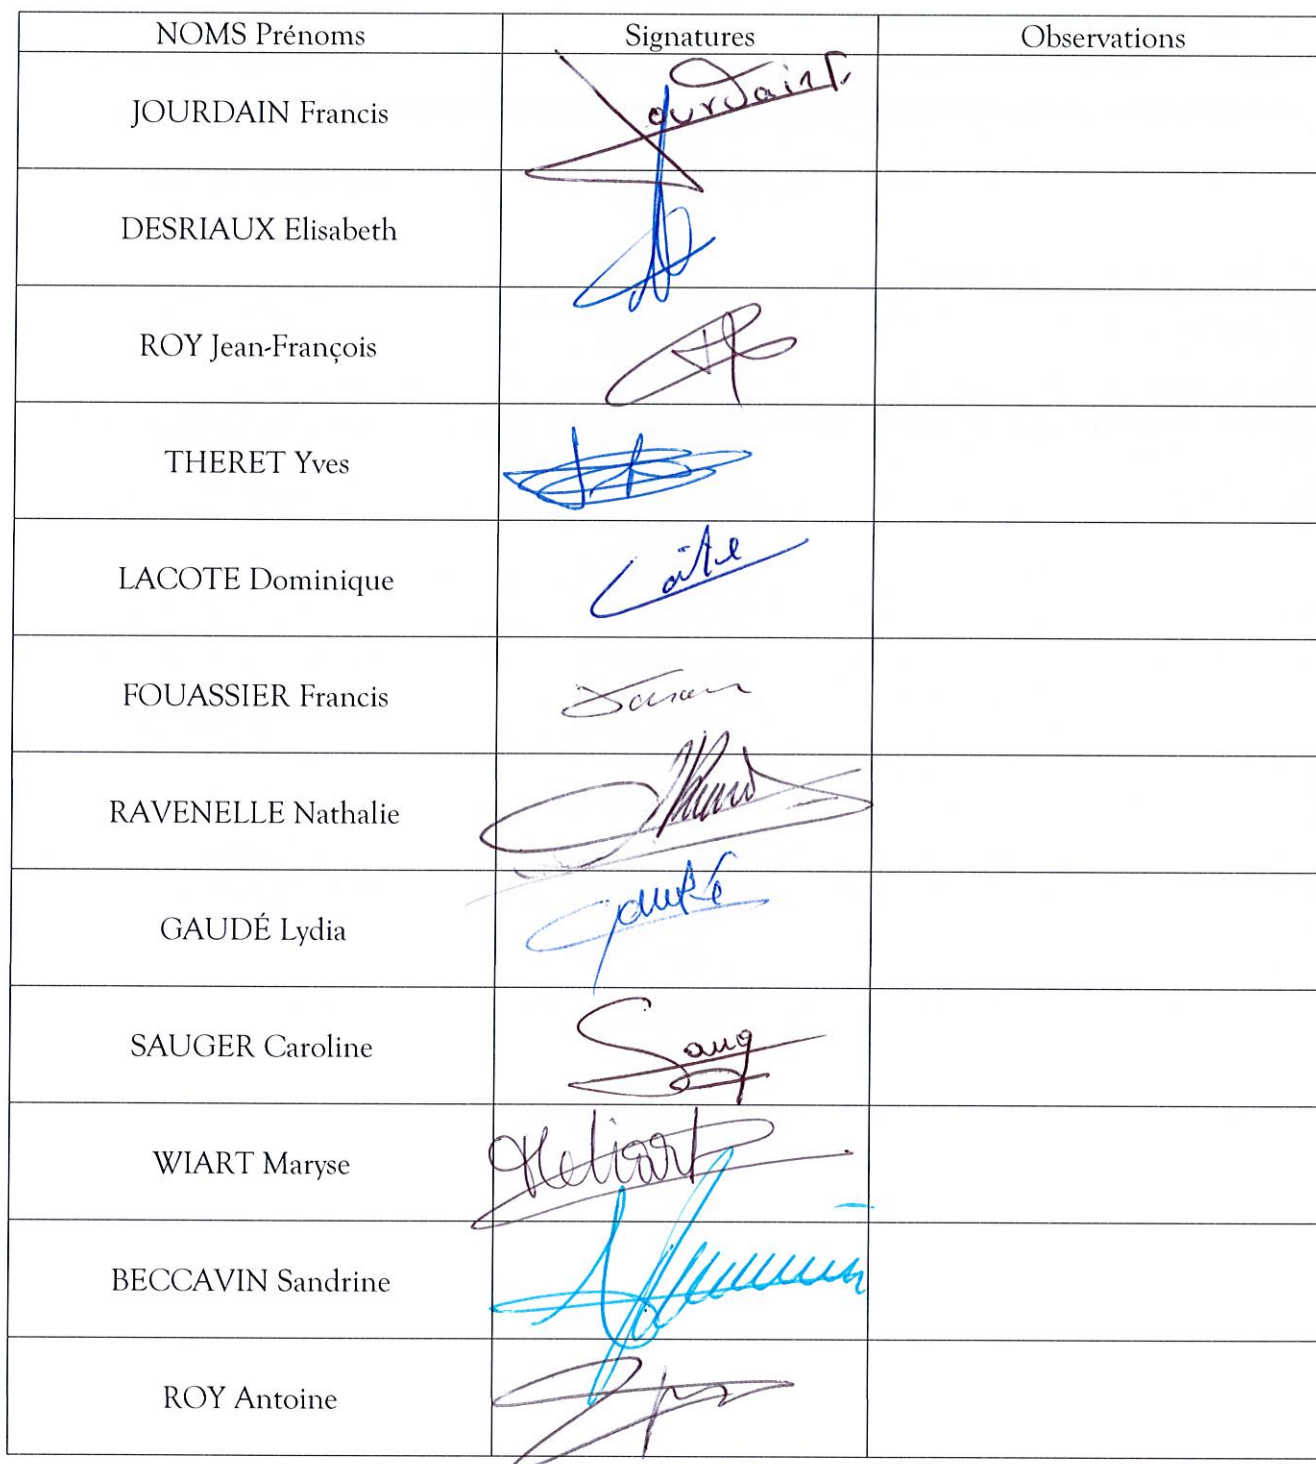 NOMS Prénoms Signatures Observations
JOURDAIN Francis Jourdain F.
DESRIAUX Elisabeth
ROY Jean-François
THERET Yves
LACOTE Dominique
FOUASSIER Francis
RAVENELLE Nathalie
GAUDÉ Lydia
SAUGER Caroline Saug
WIART Maryse
BECCAVIN Sandrine
ROY Antoine